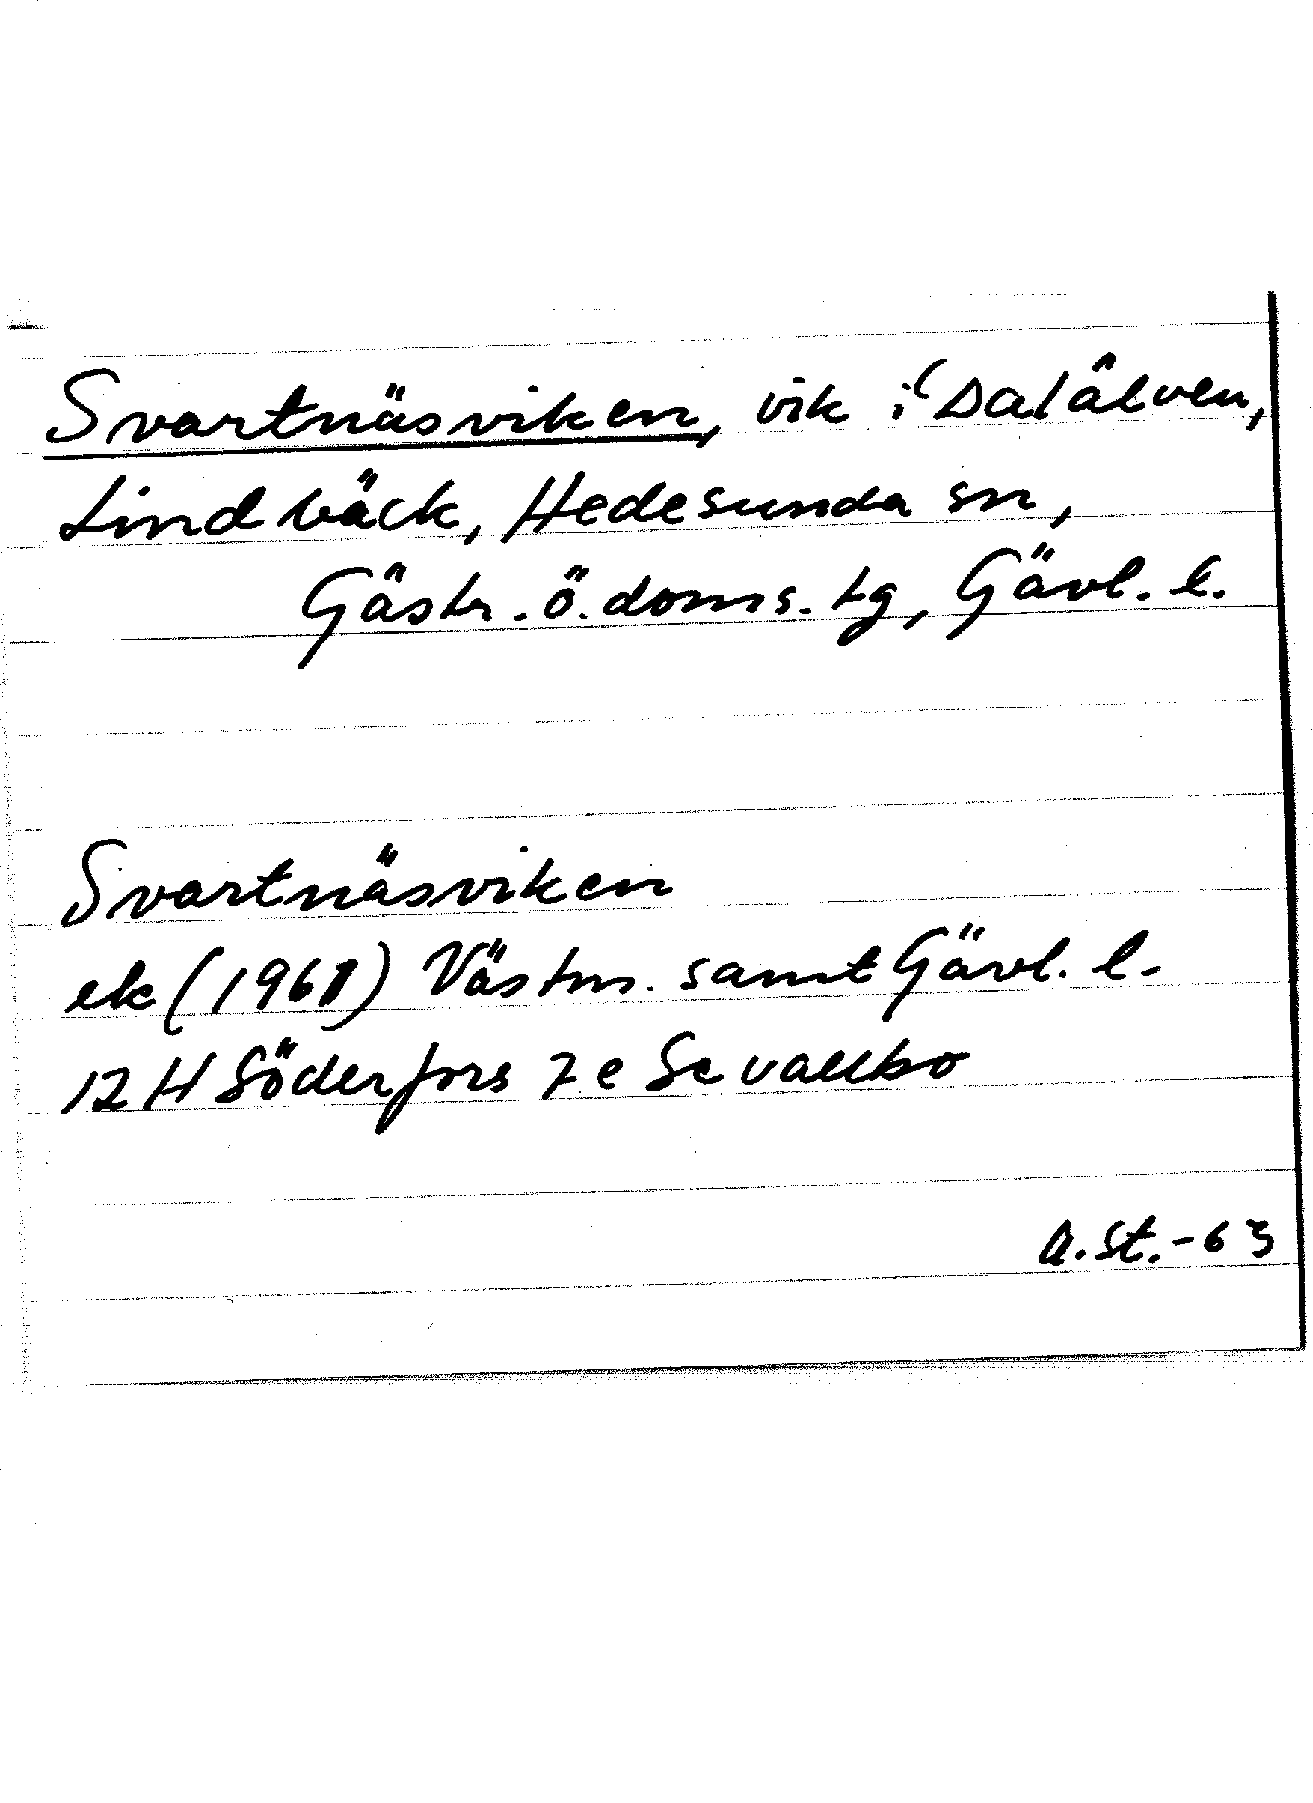 Svartnäsviken, vik i Dalälven,
Lindbäck, Hedesunda sn,
Gästr. ö. doms. tg, Gävl. l.
Svartnäsviken
ek (1961) Västm. samt Gävl. l.
12 H Söderfors 7 e Sevallbo
A. St. -63